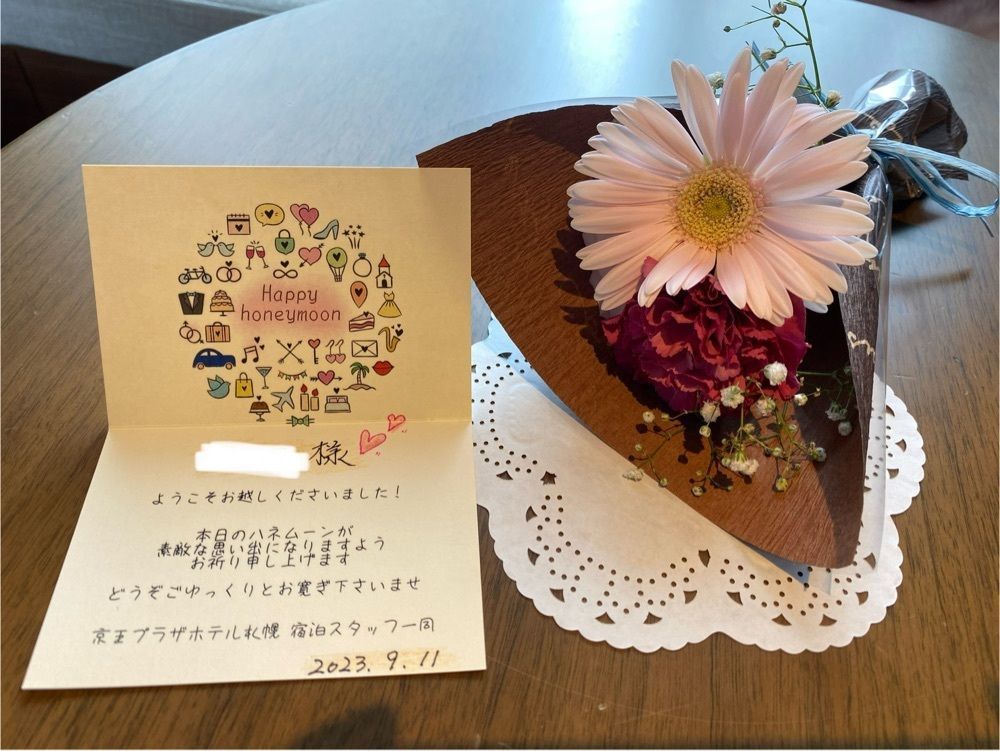 Happy
honeymoon
様
ようこそお越しくださいました！
本日のハネムーンが
素敵な思い出になりますよう
お祈り申し上げます
どうぞごゆっくりとお寛ぎ下さいませ
京王プラザホテル札幌 宿泊スタッフ一同
2023. 9. 11